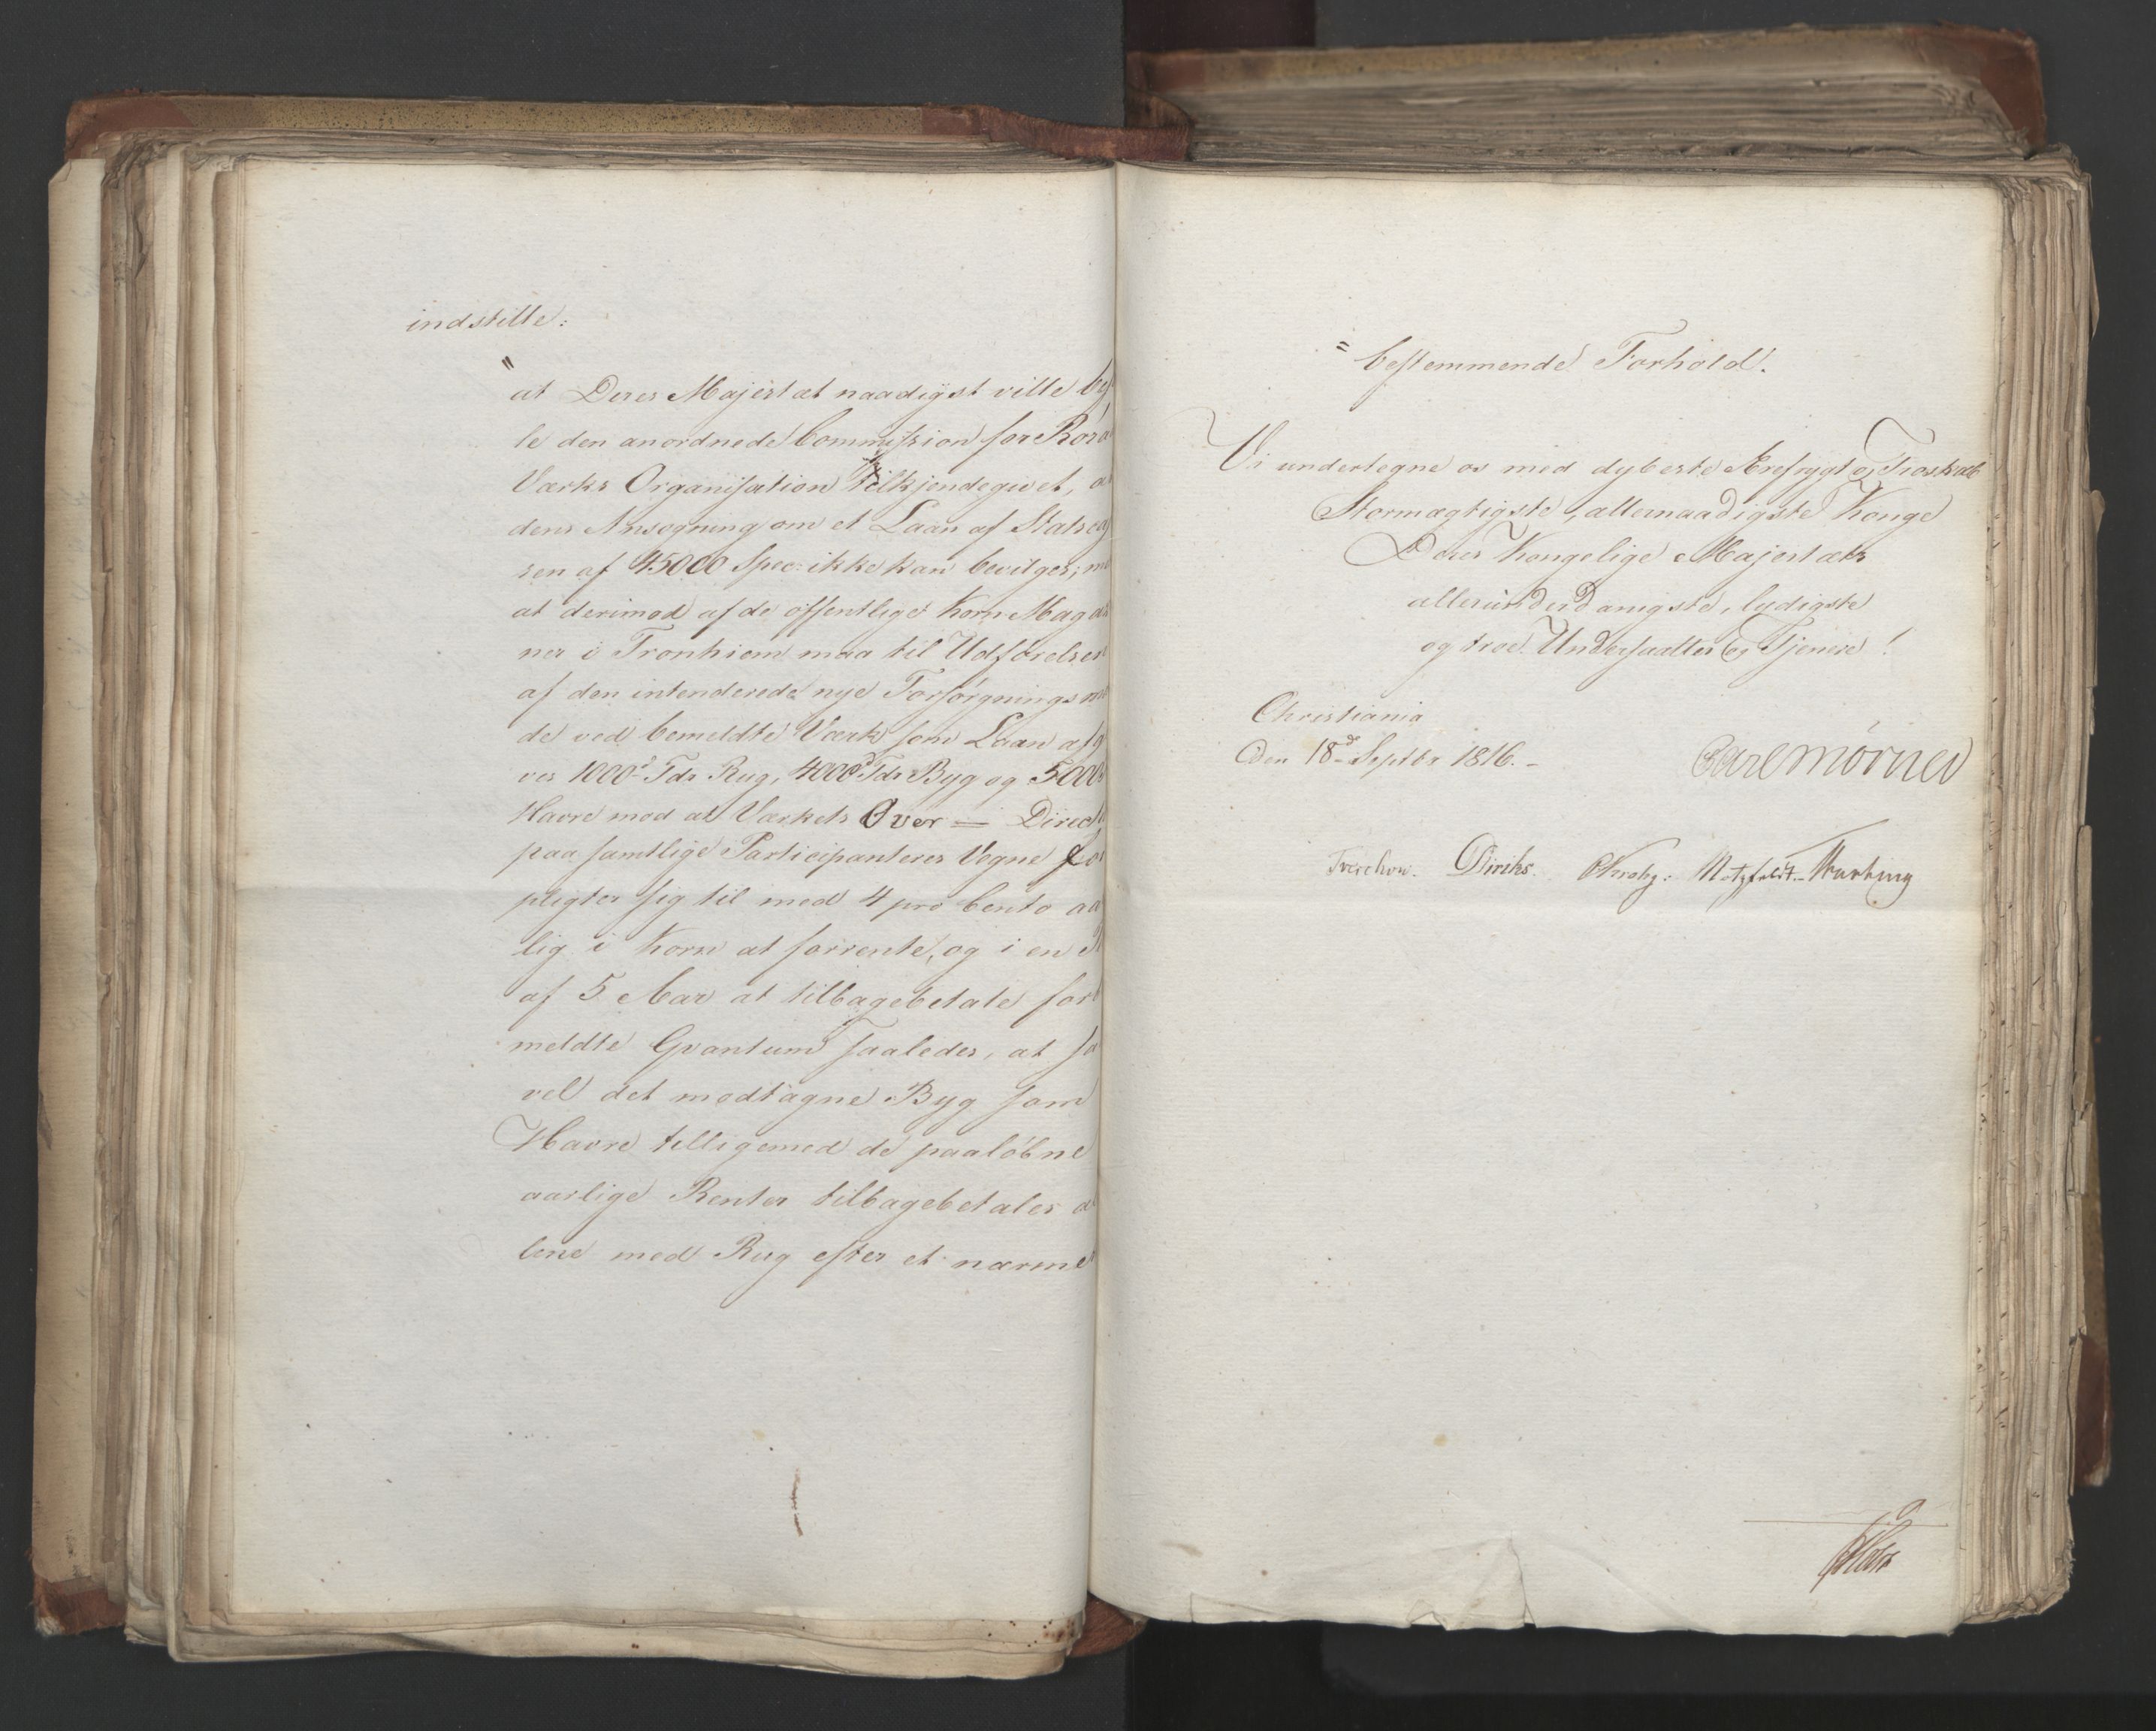 indstille:
"
at Deres Majestæt naadigst ville be
le den anordnede Commission for Rora
Værks Organisation Tilkjendegivet, a
dens Ansøgning om et Laan af Statsca
sen af 45000 Spec: ikke kan bevilges; m
at derimod af de offentlige Korn Maga
ner i Tronhiem maa til Udførelsen
af den intenderede nye Forsørgnings m
de ved bemeldte Værk som Laan afg
ves 1000d Tdr Rug, 4000d Tdr Byg og 5000
Havre mod at Værkets Over = Direct
paa samtlige Participanteres Vegne for
pligter sig til med 4 pro Cento aa
lig i Korn at forrente, og i en
af 5 Aar at tilbagebetale for
meldte Qvantum saaledes, at sa
vel det modtagne Byg som
Havre tilligemed de paaløbne
aarlige Renter tilbagebetales a
lene med Rug efter et nærme
= bestemmende Forhold.
Vi undertegne os med dybeste Ærefrygt og Troskab
Stormægtigste, allernaadigste Konge
Deres Kongelige Majestæts
allerunderdanigste, lydigste
og troe Undersaatter og Tjenere!
Christiania
Den 18d Septbr 1816. -
Carl Mörner
Treschow. Diriks. CKrohg: Motzfeldt. -